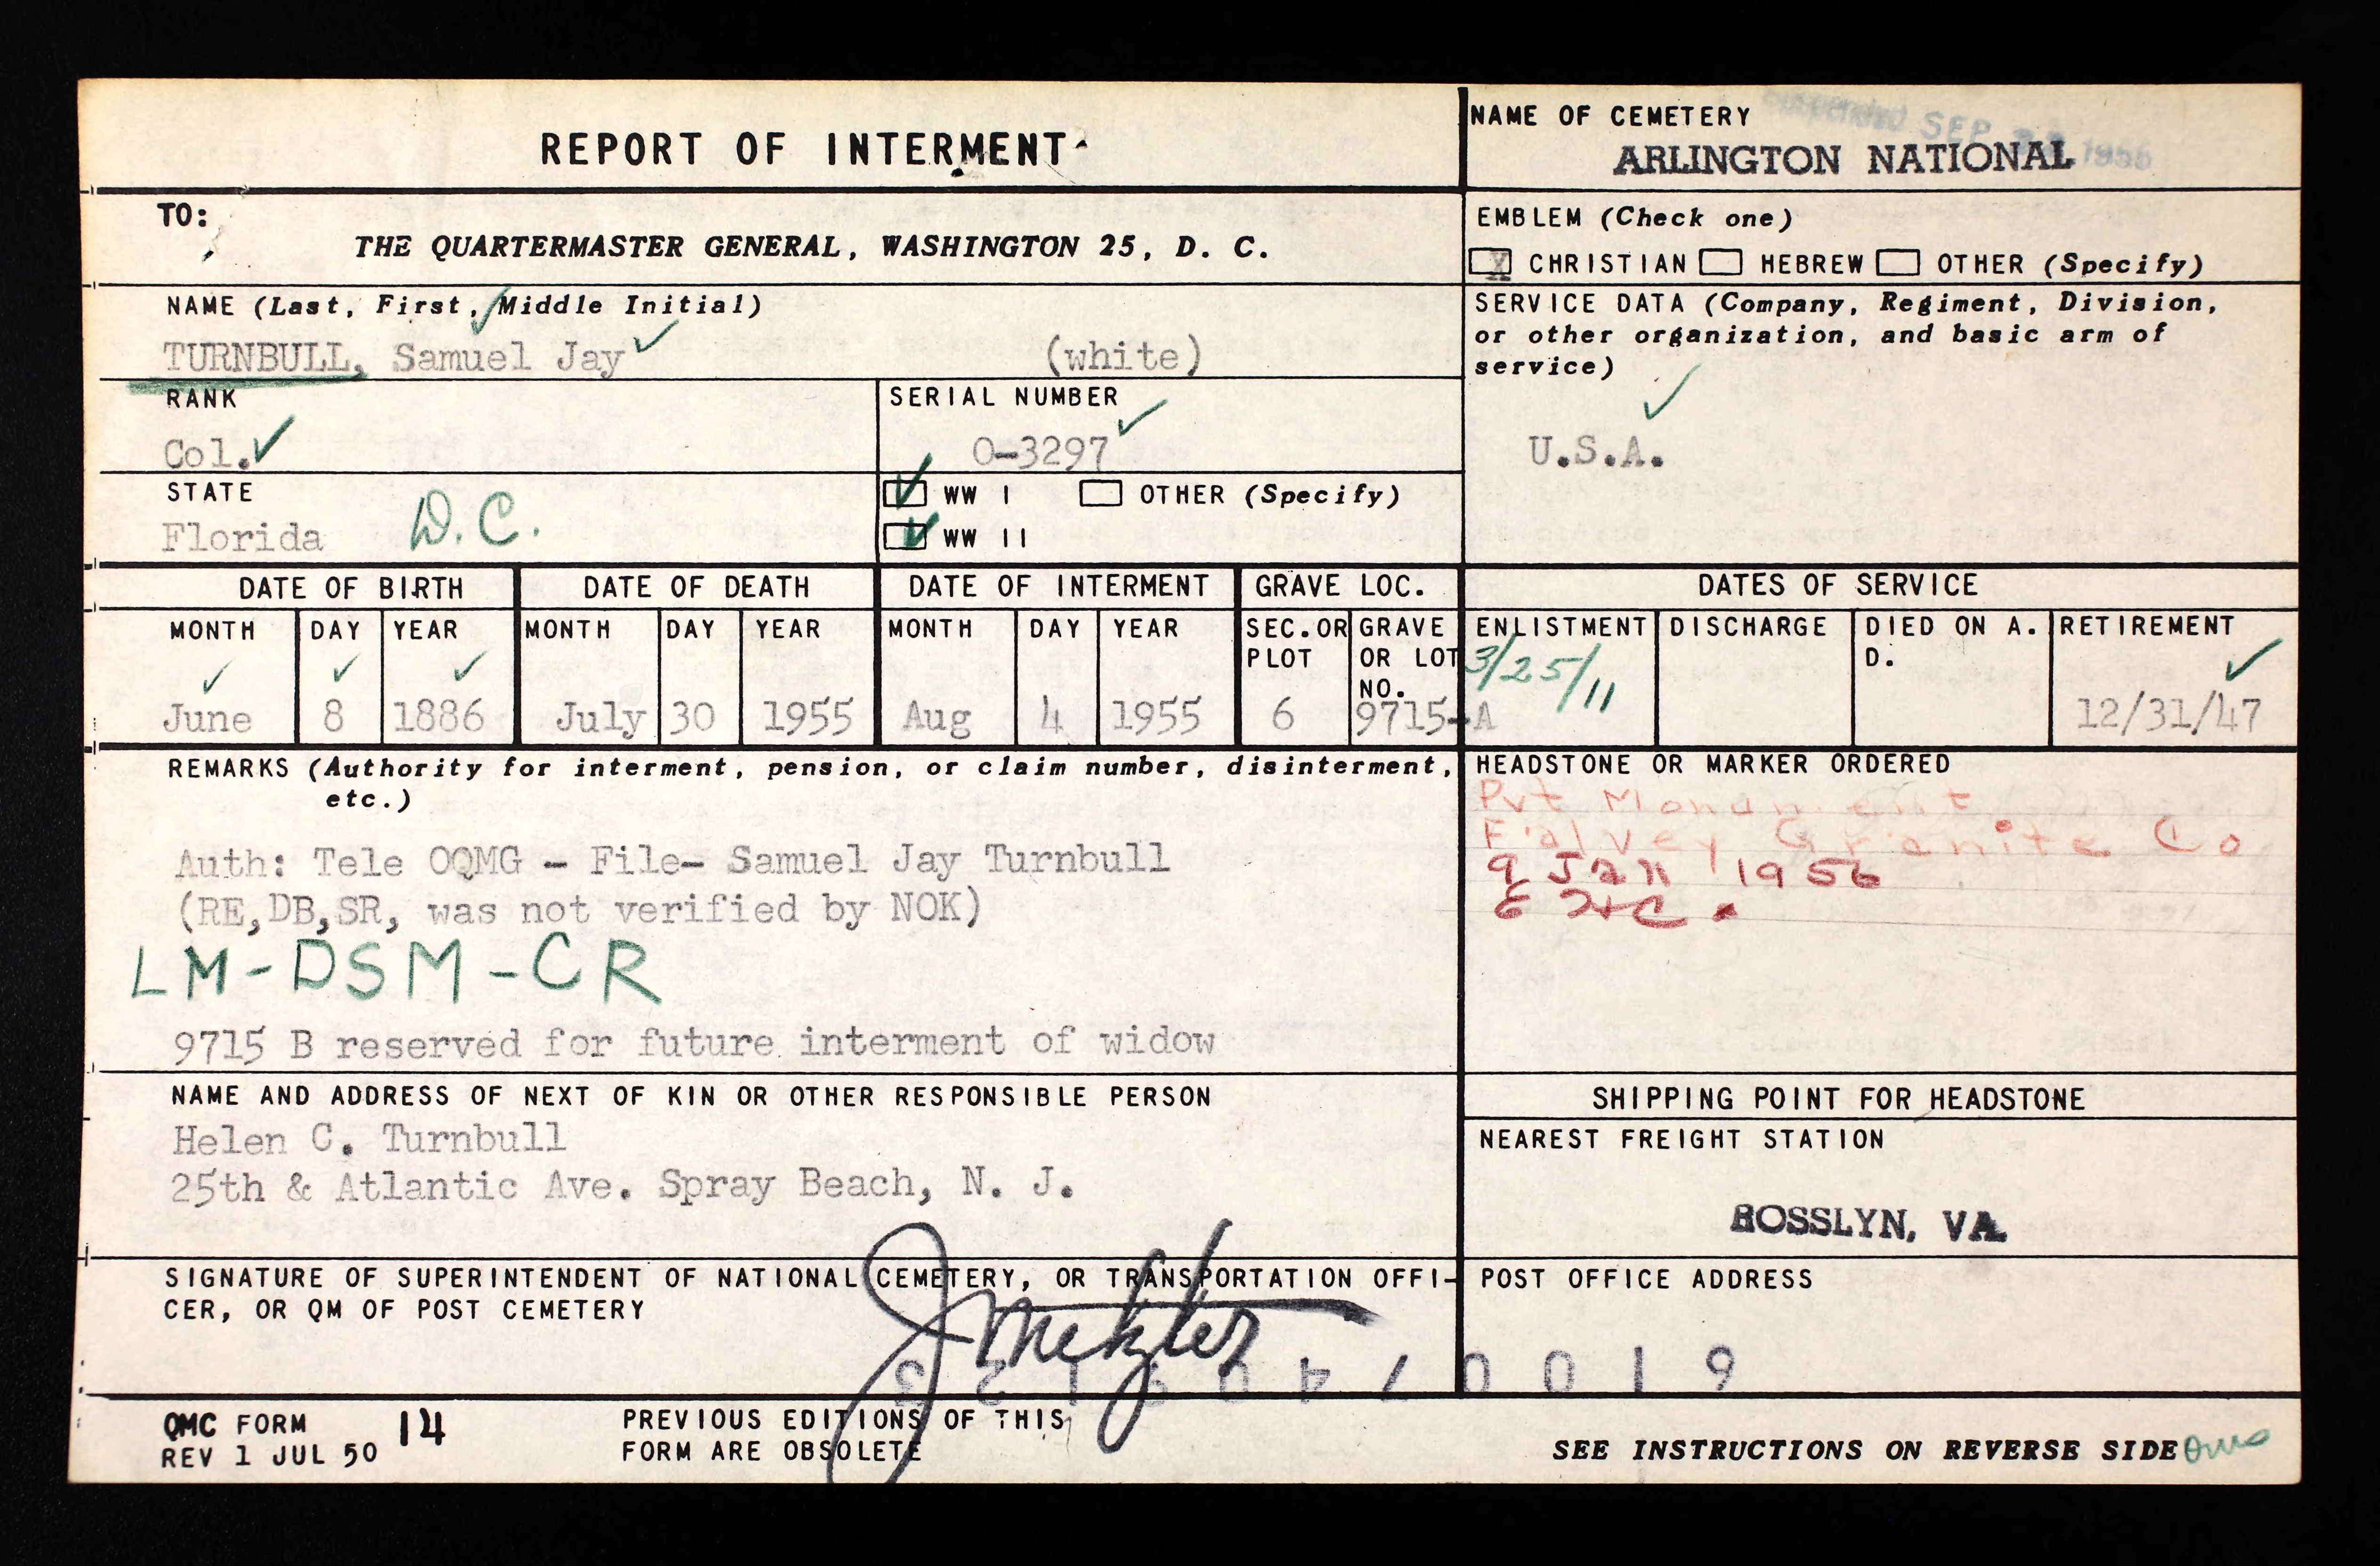 REPORT OF INTERMENT
NAME OF CEMETERY
SEP 1955
ARLINGTON NATIONAL
TO:
THE QUARTERMASTER GENERAL, WASHINGTON 25, D. C.
EMBLEM (Check one)
X CHRISTIAN HEBREW OTHER (Specify)
NAME (Last, First, Middle Initial)
TURNBULL, Samuel Jay (white)
SERVICE DATA (Company, Regiment, Division,
or other organization, and basic arm of
service)
U.S.A.
RANK
Col.
SERIAL NUMBER
O-3297
STATE
Florida D.C.
WW I OTHER (Specify)
WW II
DATE OF BIRTH DATE OF DEATH DATE OF INTERMENT GRAVE LOC. DATES OF SERVICE
MONTH DAY YEAR MONTH DAY YEAR MONTH DAY YEAR SEC. OR GRAVE ENLISTMENT DISCHARGE DIED ON A. RETIREMENT
PLOT OR LOT D.
NO.
3/25/11
June 8 1886 July 30 1955 Aug 4 1955 6 9715-A 12/31/47
REMARKS (Authority for interment, pension, or claim number, disinterment,
etc.)
Auth: Tele OQMG - File- Samuel Jay Turnbull
(RE,DB,SR, was not verified by NOK)
LM-DSM-CR
9715 B reserved for future interment of widow
HEADSTONE OR MARKER ORDERED
Pvt Monument
Falvey Granite Co
9 Jan 1956
NAME AND ADDRESS OF NEXT OF KIN OR OTHER RESPONSIBLE PERSON
Helen C. Turnbull
25th & Atlantic Ave. Spray Beach, N. J.
SHIPPING POINT FOR HEADSTONE
NEAREST FREIGHT STATION
ROSSLYN, VA.
SIGNATURE OF SUPERINTENDENT OF NATIONAL CEMETERY, OR TRANSPORTATION OFFI-
CER, OR QM OF POST CEMETERY
POST OFFICE ADDRESS
QMC FORM 14
REV 1 JUL 50
PREVIOUS EDITIONS OF THIS
FORM ARE OBSOLETE
SEE INSTRUCTIONS ON REVERSE SIDE